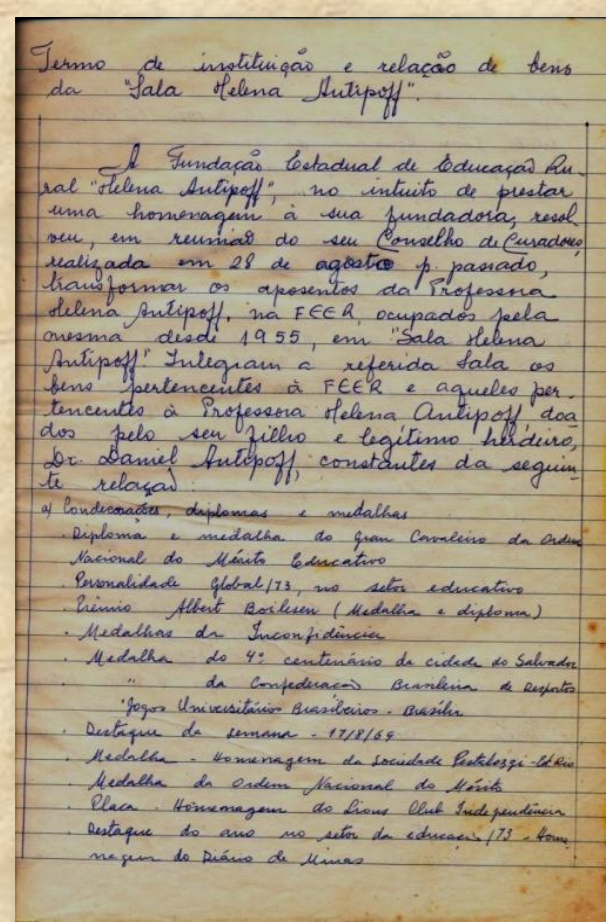 Termo de instituição e relação de bens
da "Sala Helena Antipoff".
A Fundação Estadual de Educação Ru-
ral "Helena Antipoff", no intuito de prestar
uma homenagem à sua fundadora, resol
veu, em reunião do seu Conselho de Curadores,
realizada em 28 de agosto p. passado,
transformar os aposentos da Professora
Helena Antipoff, na FEER, ocupados pela
mesma desde 1955, em "Sala Helena
Antipoff". Integram a referida Sala os
bens pertencentes à FEER e aqueles per-
tencentes à Professora Helena Antipoff doa
dos pelo seu filho e legítimo herdeiro,
Dr. Daniel Antipoff, constantes da seguin-
te relação:
a) Condecorações, diplomas e medalhas
. Diploma e medalha do gran Cavaleiro da Ordem
Nacional do Mérito Educativo
. Personalidade global/73, no setor educativo
. Prêmio Albert Boilesen (Medalha e diploma)
. Medalhas da Inconfidência
. Medalha do 4º centenário da cidade do Salvador
. " da Confederação Brasileira de Desportos
"Jogos Universitários Brasileiros - Brasília
. Destaque da semana - 17/8/69
. Medalha - Homenagem da Sociedade Pestalozzi - Rio
. Medalha da Ordem Nacional do Mérito
. Placa - Homenagem do Lions Club Independência
. Destaque do ano no setor da educação/73 - Home
nagem do Diário de Minas